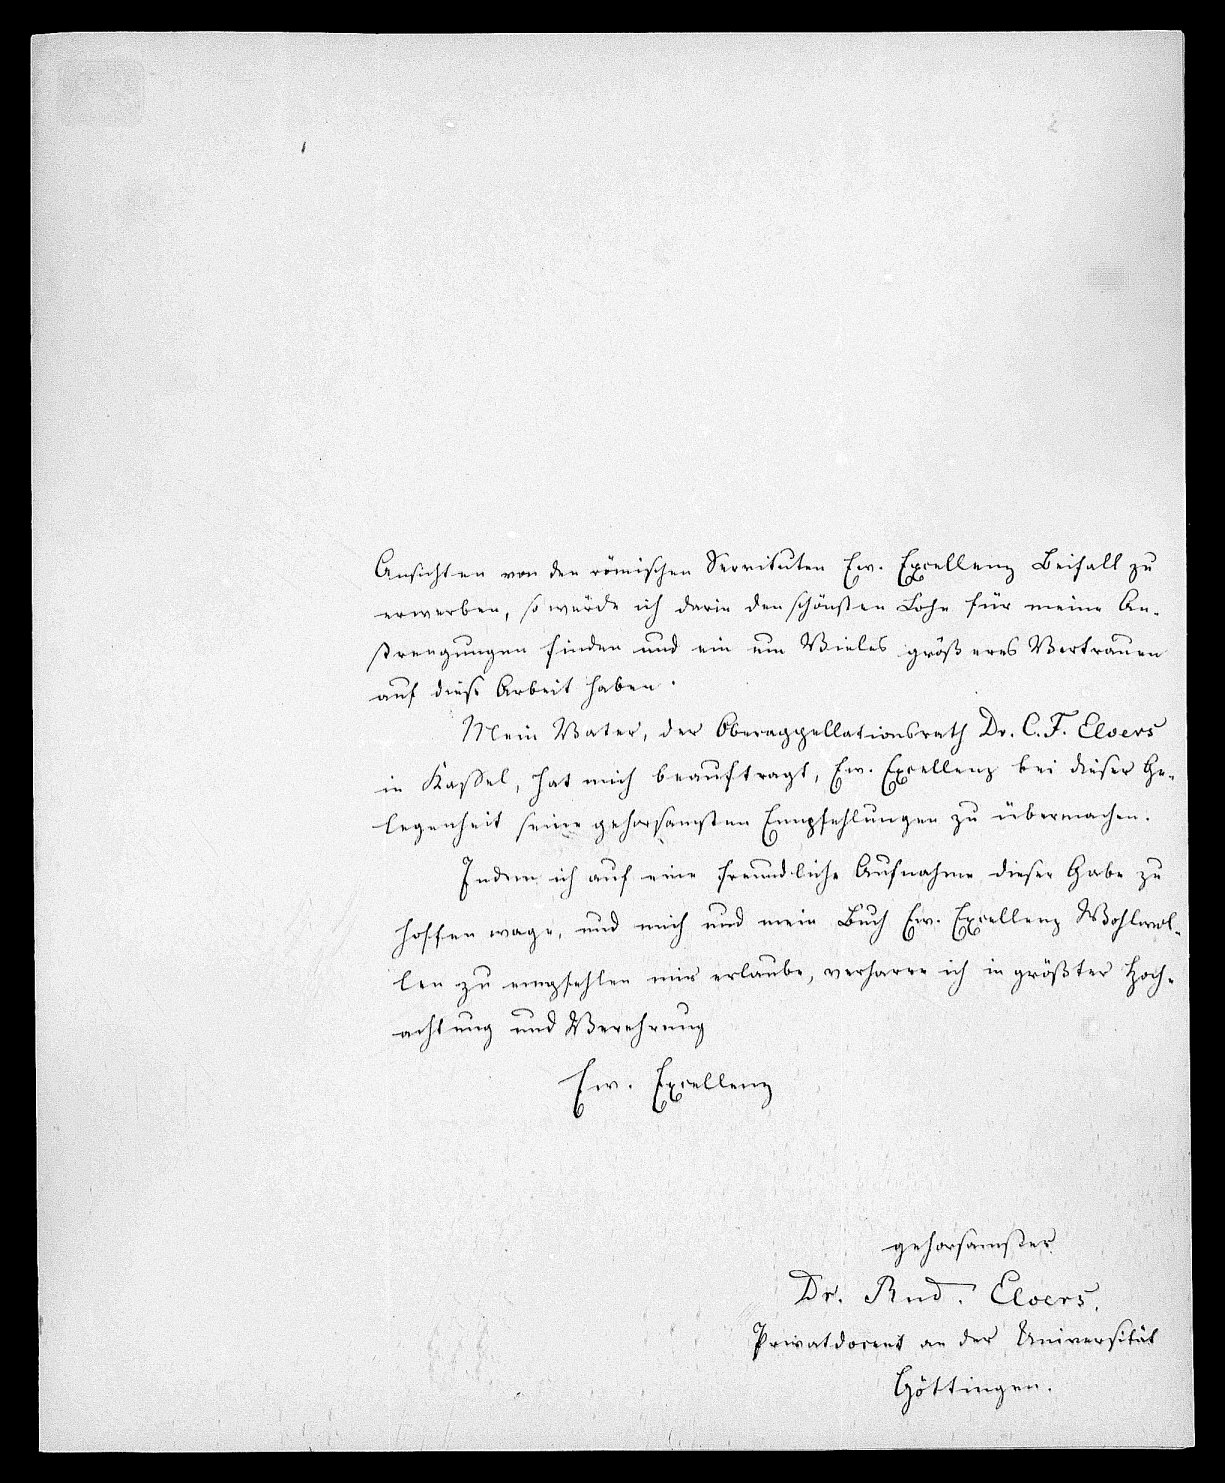 Ansichten von den römischen Servituten Ew. Excellenz Beifall zu
erwerben, so würde ich darin den schönsten Lohn für meine An-
strengungen finden und ein um Vieles größeres Vertrauen
auf diese Arbeit haben.
Mein Vater, der Oberappellationsrath Dr. C. F. Elvers
in Kassel, hat mich beauftragt, Ew. Excellenz bei dieser Ge-
legenheit seine gehorsamsten Empfehlungen zu übermachen.
Indem ich auf eine freundliche Aufnahme dieser Gabe zu
hoffen wage, und mich und mein Buch Ew. Excellenz Wohlwol-
len zu empfehlen mir erlaube, verharre ich in größter Hoch-
achtung und Verehrung
Ew. Excellenz
gehorsamster
Dr. Rud. Elvers.
Privatdocent an der Universität
Göttingen.